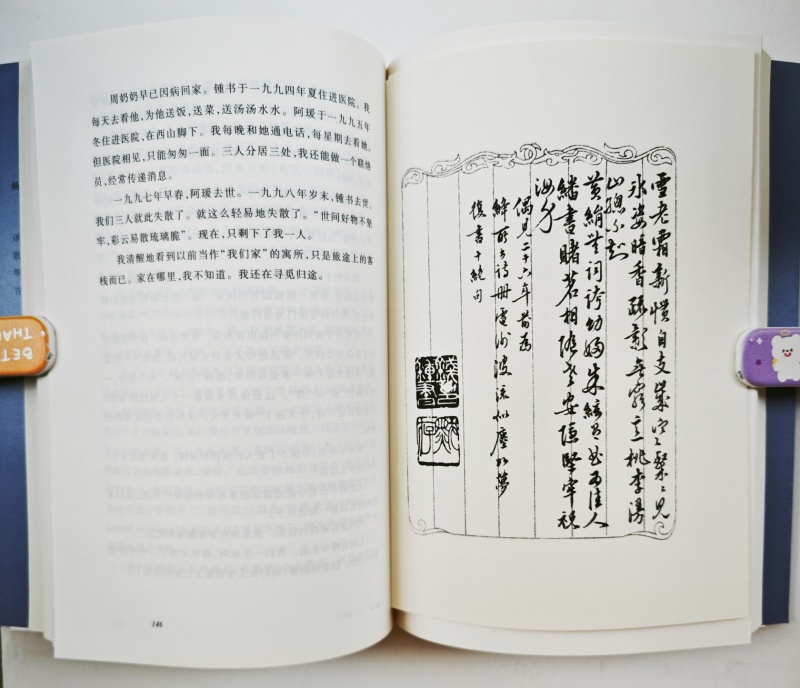 周奶奶早已因病回家。锺书于一九九四年夏住进医院。我
每天去看他,为他送饭,送菜,送汤汤水水。阿瑗于一九九五年
冬住进医院,在西山脚下。我每晚和她通电话,每星期去看她。
但医院相见,只能匆匆一面。三人分居三处,我还能做一个联络
员,经常传递消息。
一九九七年早春,阿瑗去世。一九九八年岁末,锺书去世。
我们三人就此失散了。就这么轻易地失散了。“世间好物不坚
牢,彩云易散琉璃脆”。现在,只剩下了我一人。
我清醒地看到以前当作“我们家”的寓所,只是旅途上的客
栈而已。家在哪里,我不知道。我还在寻觅归途。
146
雪老霜新慣自支歲寒粲粲見
冰姿暗香疏影無窮意桃李漫
山總不知
黃絹無詞誇幼婦朱絃有曲爲佳人
繙書賭茗相隨老安穩堅牢祝
汝身
偶見二十六年前爲
絳所書詩冊電謝波流似塵如夢
復書十絕句